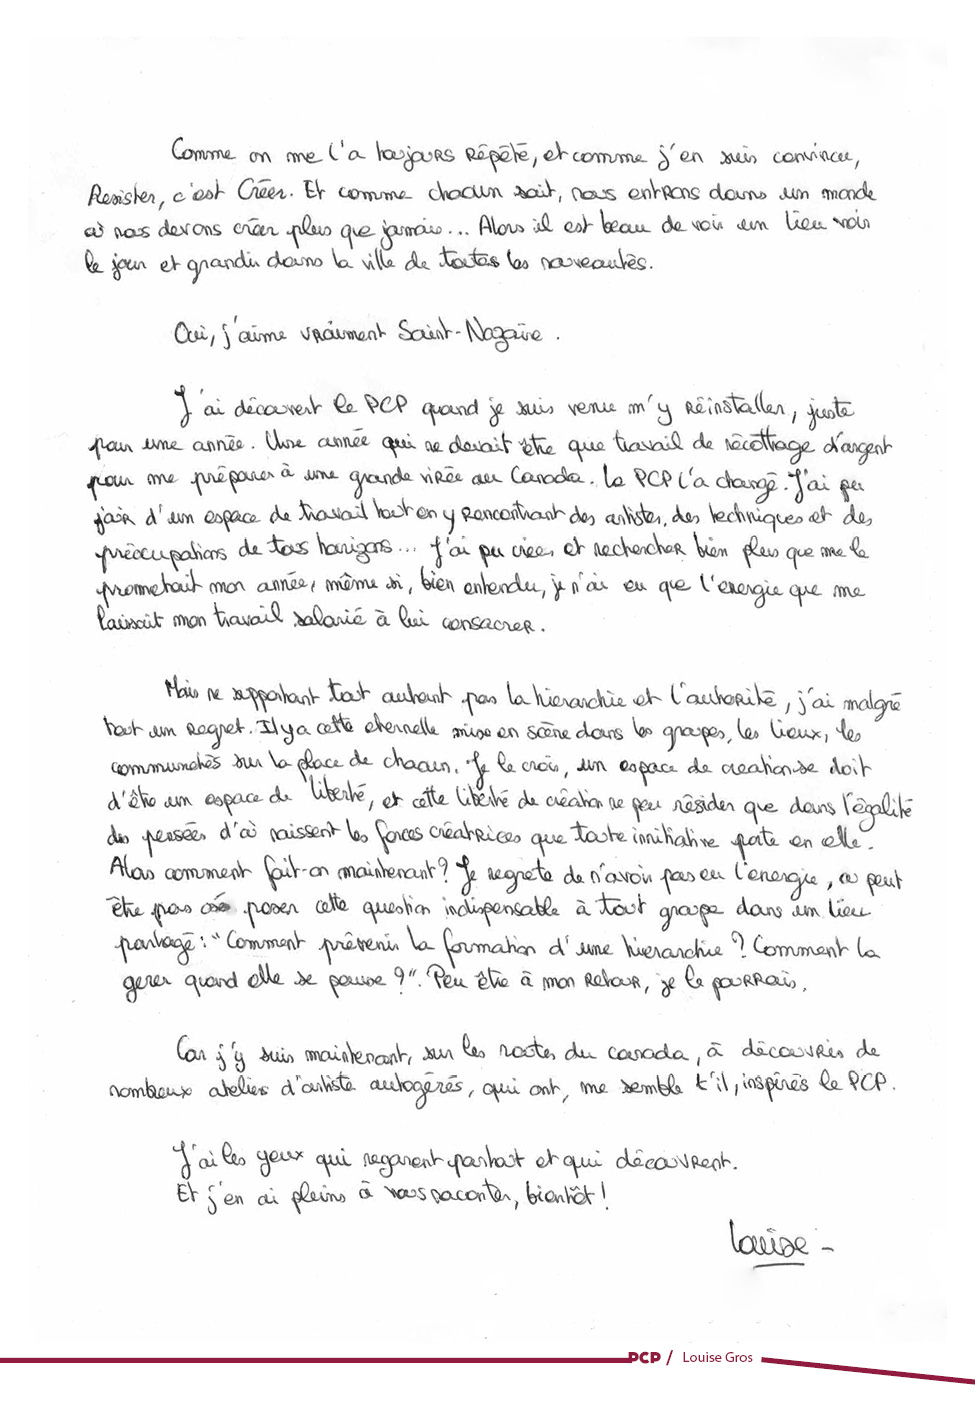 Comme on me l'a toujours répété, et comme j'en suis convincue,
Resister, c'est Créer. Et comme chacun sait, nous entrons dans un monde
où nous devons créer plus que jamais... Alors il est beau de voir un lieu voir
le jour et grandir dans la ville de toutes les nouveautés.
Oui, j'aime vraiment Saint-Nazaire.
J'ai découvert le PCP quand je suis venue m'y réinstaller, juste
pour une année. Une année qui ne devait être que travail de récoltage d'argent
pour me préparer à une grande virée au Canada. Le PCP l'a changé. J'ai pu
jouir d'un espace de travail tout en y rencontrant des artistes, des techniques et des
préoccupations de tous horizons... J'ai pu créer et rechercher bien plus que me le
promettait mon année, même si, bien entendu, je n'ai eu que l'énergie que me
laissait mon travail salarié à lui consacrer.
Mais ne supportant tout autant pas la hierarchie et l'autorité, j'ai malgré
tout un regret. Il y a cette eternelle mise en scène dans les groupes, les lieux, les
communautés sur la place de chacun. Je le crois, un espace de creation se doit
d'être un espace de liberté, et cette liberté de création ne peu résider que dans l'égalité
des pensées d'où naissent les forces créatrices que toute innitiative porte en elle.
Alors comment fait-on maintenant? Je regrete de n'avoir pas eu l'energie, ou peut
être pas osé poser cette question indispensable à tout groupe dans un lieu
partagé : "Comment prévenir la formation d'une hierarchie ? Comment la
gerer quand elle se pause ?". Peu être à mon retour, je le pourrais.
Car j'y suis maintenant, sur les routes du canada, à découvrir de
nombreux ateliers d'artiste autogérés, qui ont, me semble t'il, inspirés le PCP.
J'ai les yeux qui regarent partout et qui découvrent.
Et j'en ai pleins à vous raconter, bientôt !
Louise -
PCP / Louise Gros